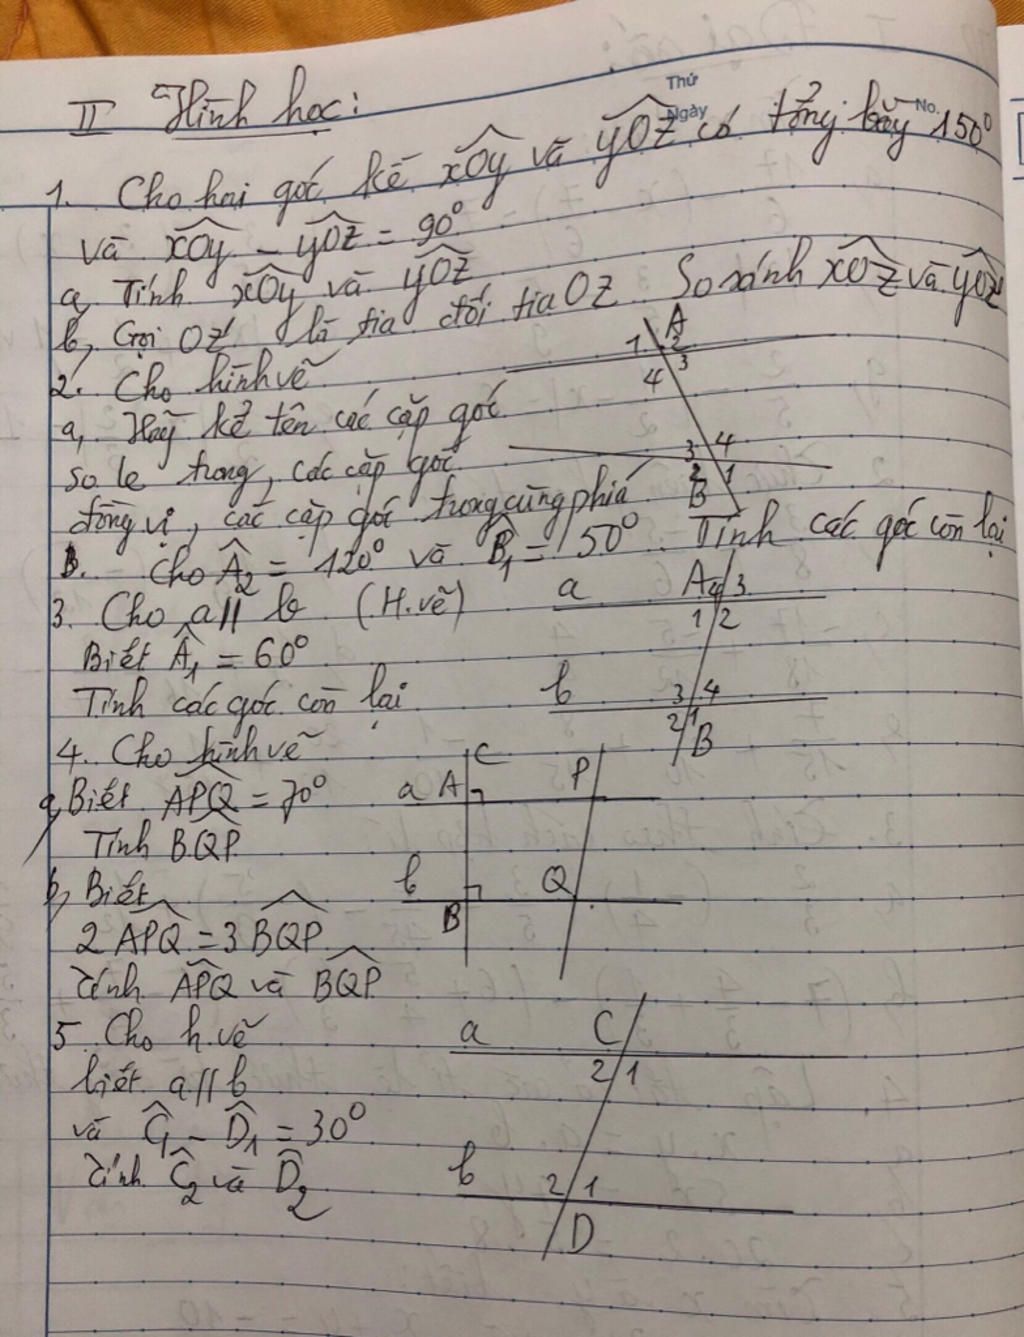 Thứ
Ngày
No.
II Hình học:
1. Cho hai góc kề xOy và yOz có tổng bằng 150°
và xOy - yOz = 90°
a, Tính xOy và yOz
b, Gọi Oz' là tia đối tia Oz. So sánh xOz và yOz'
2. Cho hình vẽ
a, Hãy kể tên các cặp góc
so le trong, các cặp góc
đồng vị, các cặp góc trong cùng phía
B. Cho A2 = 120° và B1 = 50°. Tính các góc còn lại
A
1 2
4 3
3 4
2 1
B
3. Cho a // b (H.vẽ)
Biết A1 = 60°
Tính các góc còn lại
a A 4 3
1 2
b 3 4
2 1
B
4. Cho hình vẽ
a, Biết APQ = 70°
Tính BQP
b, Biết
2 APQ = 3 BQP
Tính APQ và BQP
C
a A P
b Q
B
5. Cho h.vẽ
biết a // b
và C1 - D1 = 30°
Tính C2 và D2
a C
2 1
b 2 1
D